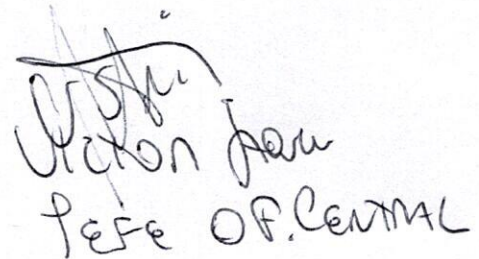 Victor
JEFE OF. CENTRAL